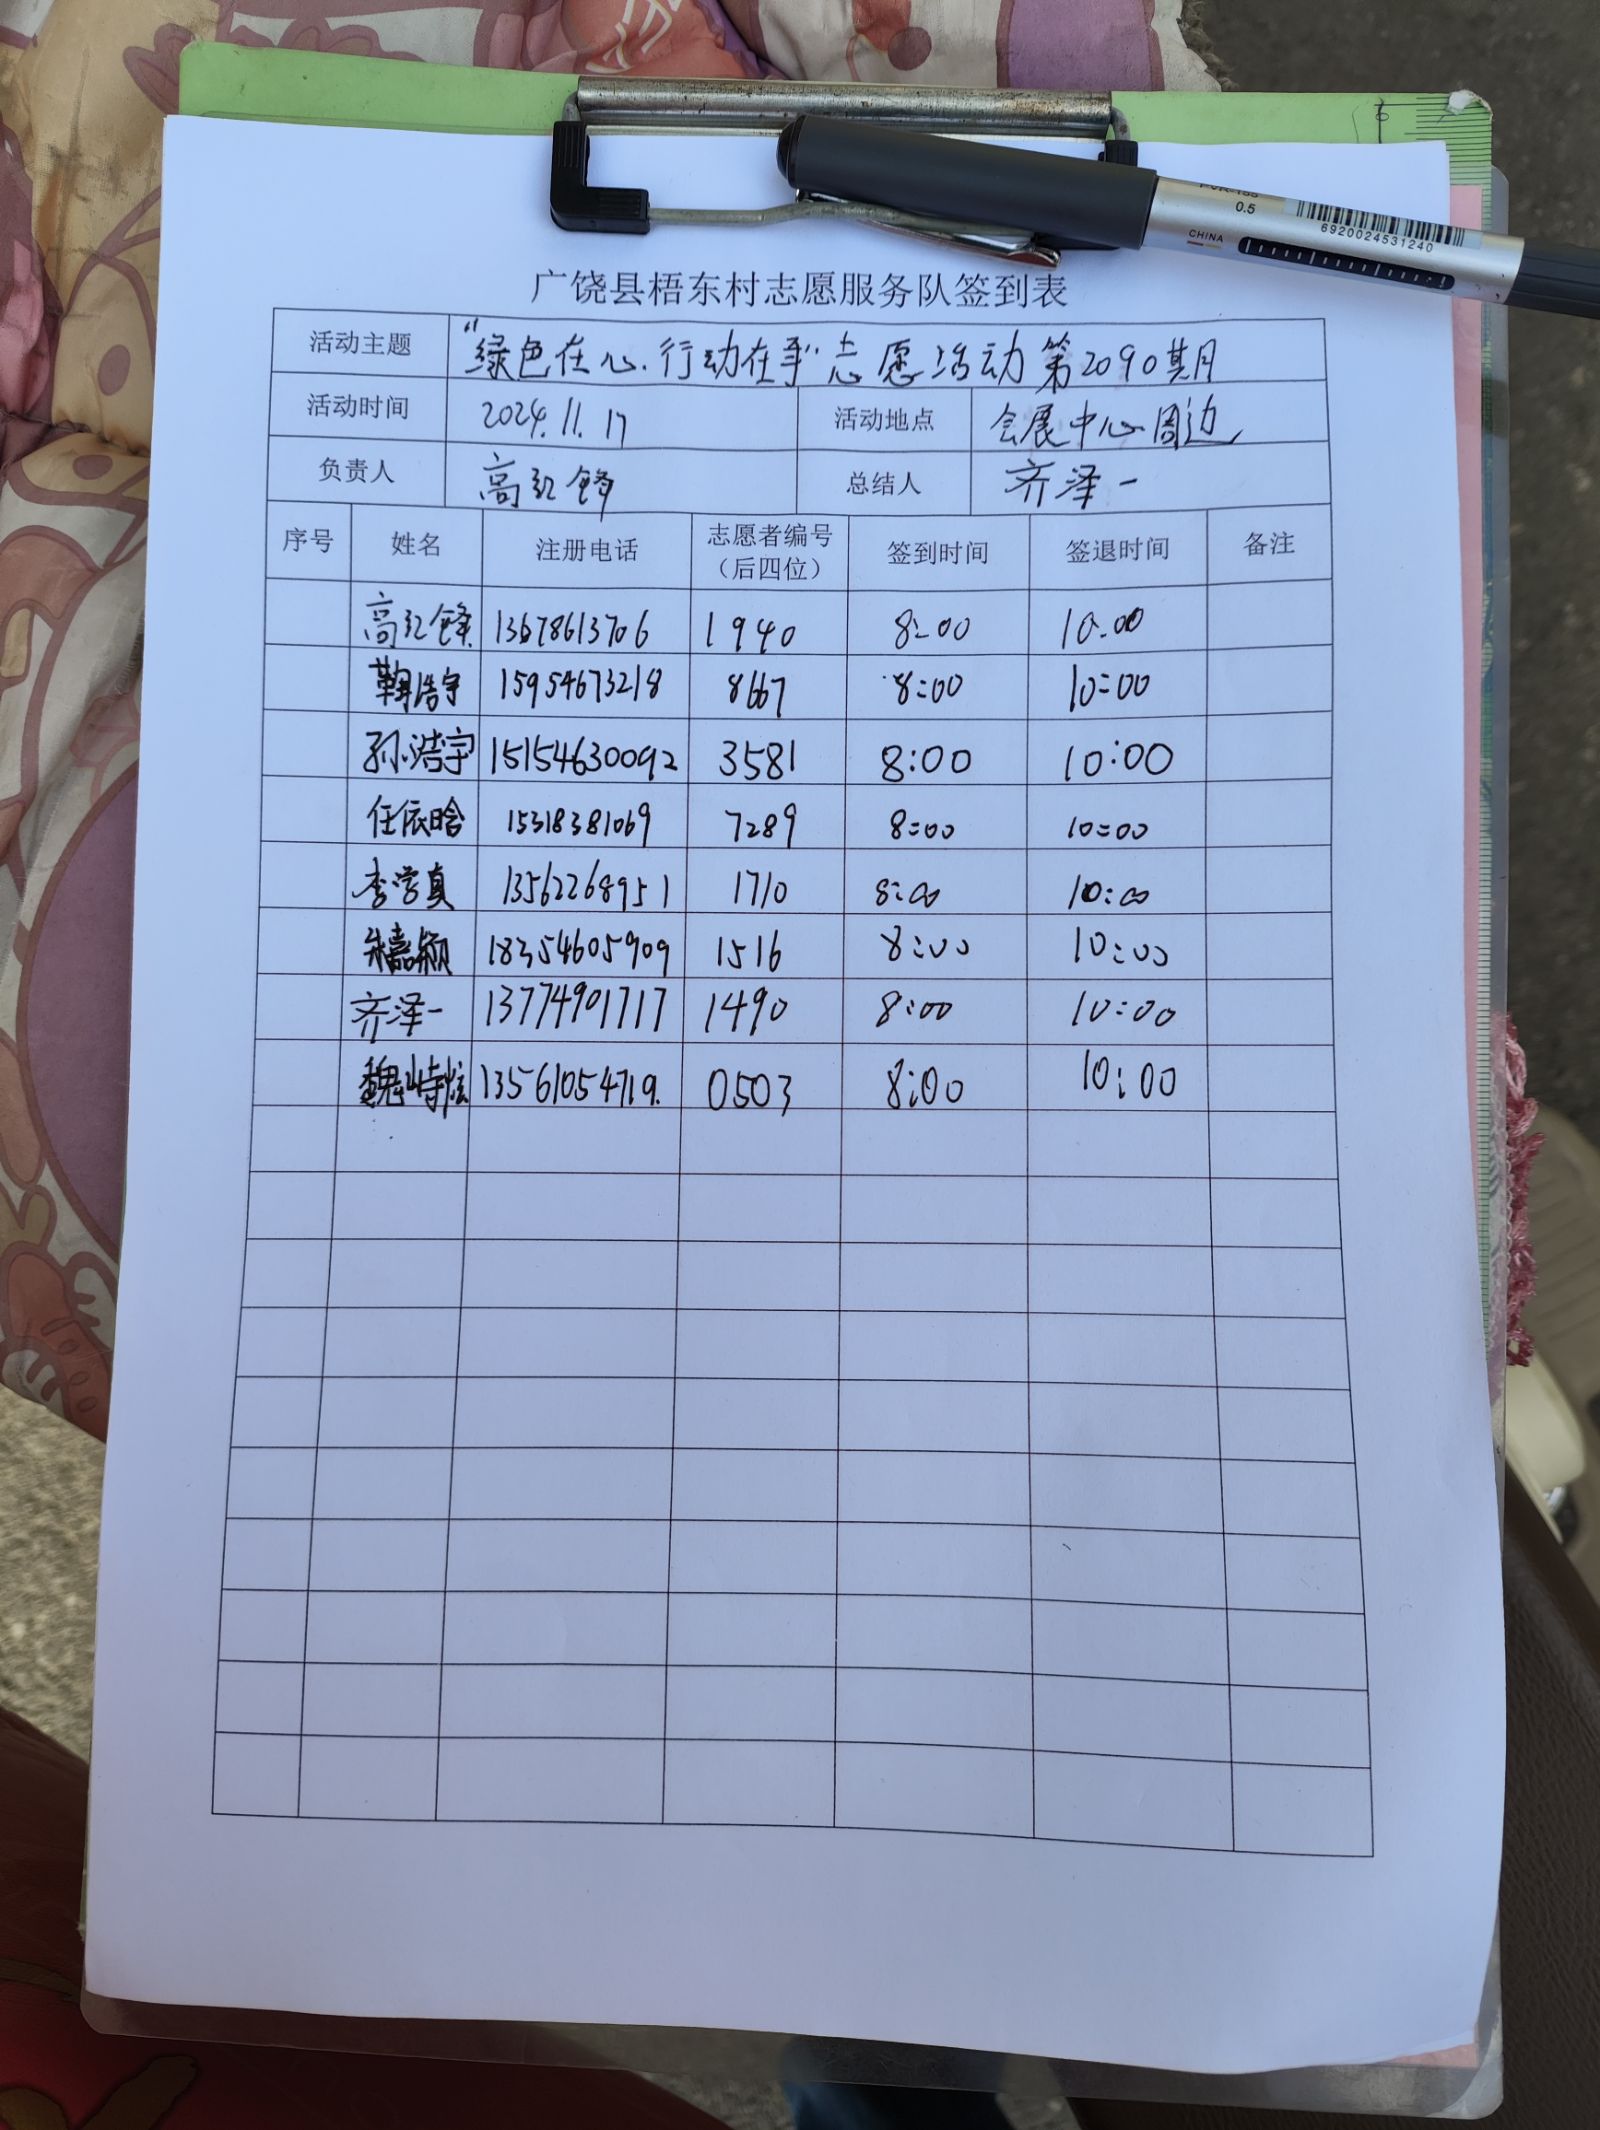 0.5
CHINA
6920024531240
广饶县梧东村志愿服务队签到表
活动主题 “绿色在心.行动在手”志愿活动第2090期
活动时间 2024.11.17 活动地点 会展中心周边
负责人 高红锋 总结人 齐泽一
序号 姓名 注册电话 志愿者编号（后四位） 签到时间 签退时间 备注
高红锋 13678613706 1940 8:00 10:00
鞠浩宇 15954673218 8667 8:00 10:00
孙浩宇 15154630092 3581 8:00 10:00
任依晗 15318381069 7289 8:00 10:00
李学真 13562268951 1710 8:00 10:00
朱嘉颖 18354605909 1516 8:00 10:00
齐泽一 13774901717 1490 8:00 10:00
魏峙炫 13561054719. 0503 8:00 10:00